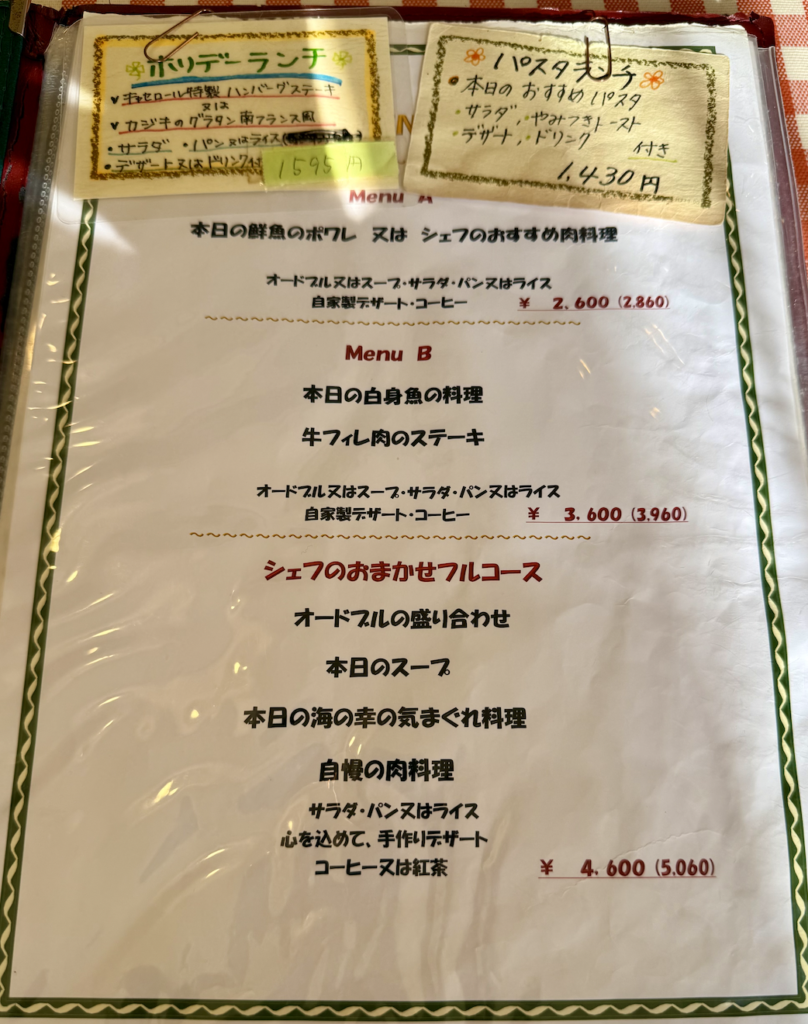 ホリデーランチ
キャセロール特製 ハンバーグステーキ
又は
カジキのグラタン南フランス風
・サラダ ・パン又はライス
・デザート又はドリンク付
1595円
パスタランチ
・本日のおすすめパスタ
・サラダ、・やみつきトースト
・デザート、・ドリンク
付き
1,430円
Menu A
本日の鮮魚のポワレ 又は シェフのおすすめ肉料理
オードブル又はスープ・サラダ・パン又はライス
自家製デザート・コーヒー ¥ 2,600 (2,860)
Menu B
本日の白身魚の料理
牛フィレ肉のステーキ
オードブル又はスープ・サラダ・パン又はライス
自家製デザート・コーヒー ¥ 3,600 (3,960)
シェフのおまかせフルコース
オードブルの盛り合わせ
本日のスープ
本日の海の幸の気まぐれ料理
自慢の肉料理
サラダ・パン又はライス
心を込めて、手作りデザート
コーヒー又は紅茶 ¥ 4,600 (5,060)